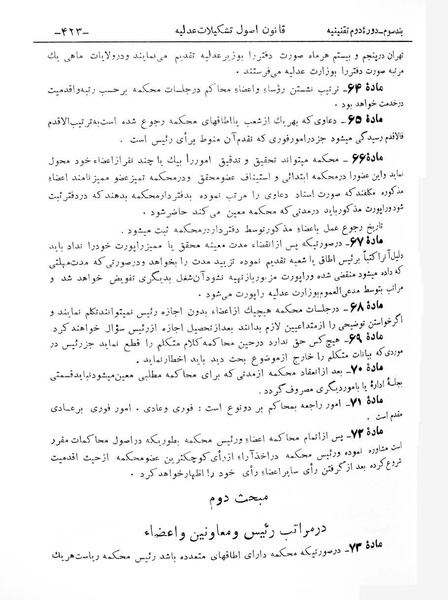 بندسوم–دورهٔ دوم تقنینیه قانون اصول تشکیلات عدلیه –۴۲۳–
تهران درپنجم و بیستم هرماه صورت دفتررا بوزیرعدلیه تقدیم می‌نمایند ودرولایات ماهی یک
مرتبه صورت دفتررا بوزارت عدلیه می‌فرستند .
مادهٔ ۶۴– ترتیب نشستن رؤساء واعضاء محاکم درجلسات محکمه برحسب رتبه‌واقدمیت
درخدمت خواهد بود .
مادهٔ ۶۵– دعاوی‌که بهریک ازشعب یااطاقهای محکمه رجوع شده است‌به‌ترتیب‌الاقدم
فالاقدم رسیدگی میشود جزدرامورفوری که تقدم‌آن منوط برأی رئیس است .
مادهٔ ۶۶– محکمه میتواند تحقیق و تدقیق اموررا بیک یا چند نفرازاعضاء خود محول
نماید واین عضورا درمحکمه ابتدائی و استیناف عضومحقق ودرمحکمه تمیزعضو ممیزنامند اعضاء
مذکوره مکلفند که صورت اسناد دعاوی را مرتب نموده بدفتردارمحکمه بدهند که دردفترثبت
شود وراپورت مذکورباید درمدتی که محکمه معین می کند حاضرشود .
تاریخ رجوع عمل باعضاء مذکورتوسط دفترداردرمحکمه ثبت میشود .
مادهٔ ۶۷– درصورتیکه پس ازانقضاء مدت معینه محقق یا ممیزراپورت خودرا نداد باید
دلیل آنرا کتباً برئیس اطاق یا شعبه تقدیم نموده تزیید مدت را بخواهد ودرصورتی که مدت‌مهلتی
که داده میشود منقضی شده وراپورت مزبورباز تهیه نشود آن‌شغل بدیگری تفویض خواهد شد و
مراتب بتوسط مدعی‌العموم‌بوزارت عدلیه راپورت می‌شود .
مادهٔ ۶۸– درجلسات محکمه هیچیک ازاعضاء بدون اجازه رئیس نمیتوانندتکلم نمایند و
اگرخواستن توضیحی را ازمتداعیین لازم بدانند بعدازتحصیل اجازه ازرئیس سؤال خواهند کرد.
مادهٔ ۶۹– هیچ‌کس حق ندارد درحین محاکمه کلام متکلم را قطع نماید جزرئیس در
موردی‌که بیانات متکلم را خارج ازموضوع بحث دید باید اخطارنماید .
مادهٔ ۷۰– بعد ازانعقاد محکمه ازمدتی که برای محاکمه مطلبی معین‌میشودنبایدقسمتی
بجلسهٔ ادارهٔ یا باموردیگری مصروف گردد .
مادهٔ ۷۱– امور راجعه بمحاکم بر دونوع است : فوری وعادی . امور فوری برعادی
مقدم است .
مادهٔ ۷۲– پس ازاتمام محاکمه اعضاء ورئیس محکمه بطوریکه دراصول محاکمات مقرر
است مشاوره نموده ورئیس محکمه دراخذآراء ازرأی کوچکترین عضومحکمه ازحیث اقدمیت
شروع کرده بعد ازگرفتن رأی سایراعضاء رأی خود رااظهارخواهدکرد .
مبحث دوم
درمراتب رئیس ومعاونین واعضاء
مادهٔ ۷۳– درصورتیکه محکمه دارای اطاقهای متعدده باشد رئیس محکمه ریاست‌هریك